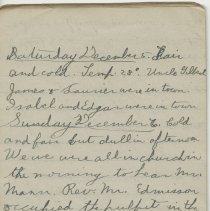 Saturday December 5. Fair
and cold. Temp 28°. Uncle Gilbert
James & Laurier were in town.
Isobel and Edgar were in town
Sunday December 6. Cold
and fair but dull in afternoon
We were all in church in
the morning to hear Mr.
Mann. Rev. Mr. Edmisson
occupied the pulpit in the